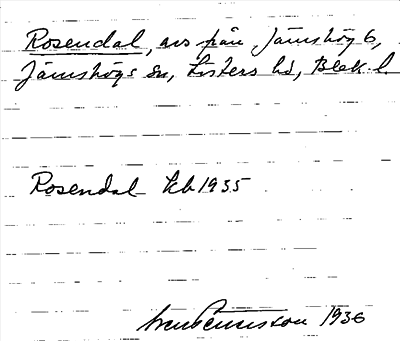 Rosendal, avs från Jämshög 6,
Jämshögs sn, Listers hd, Blek. l.
Rosendal Kb 1935
1936